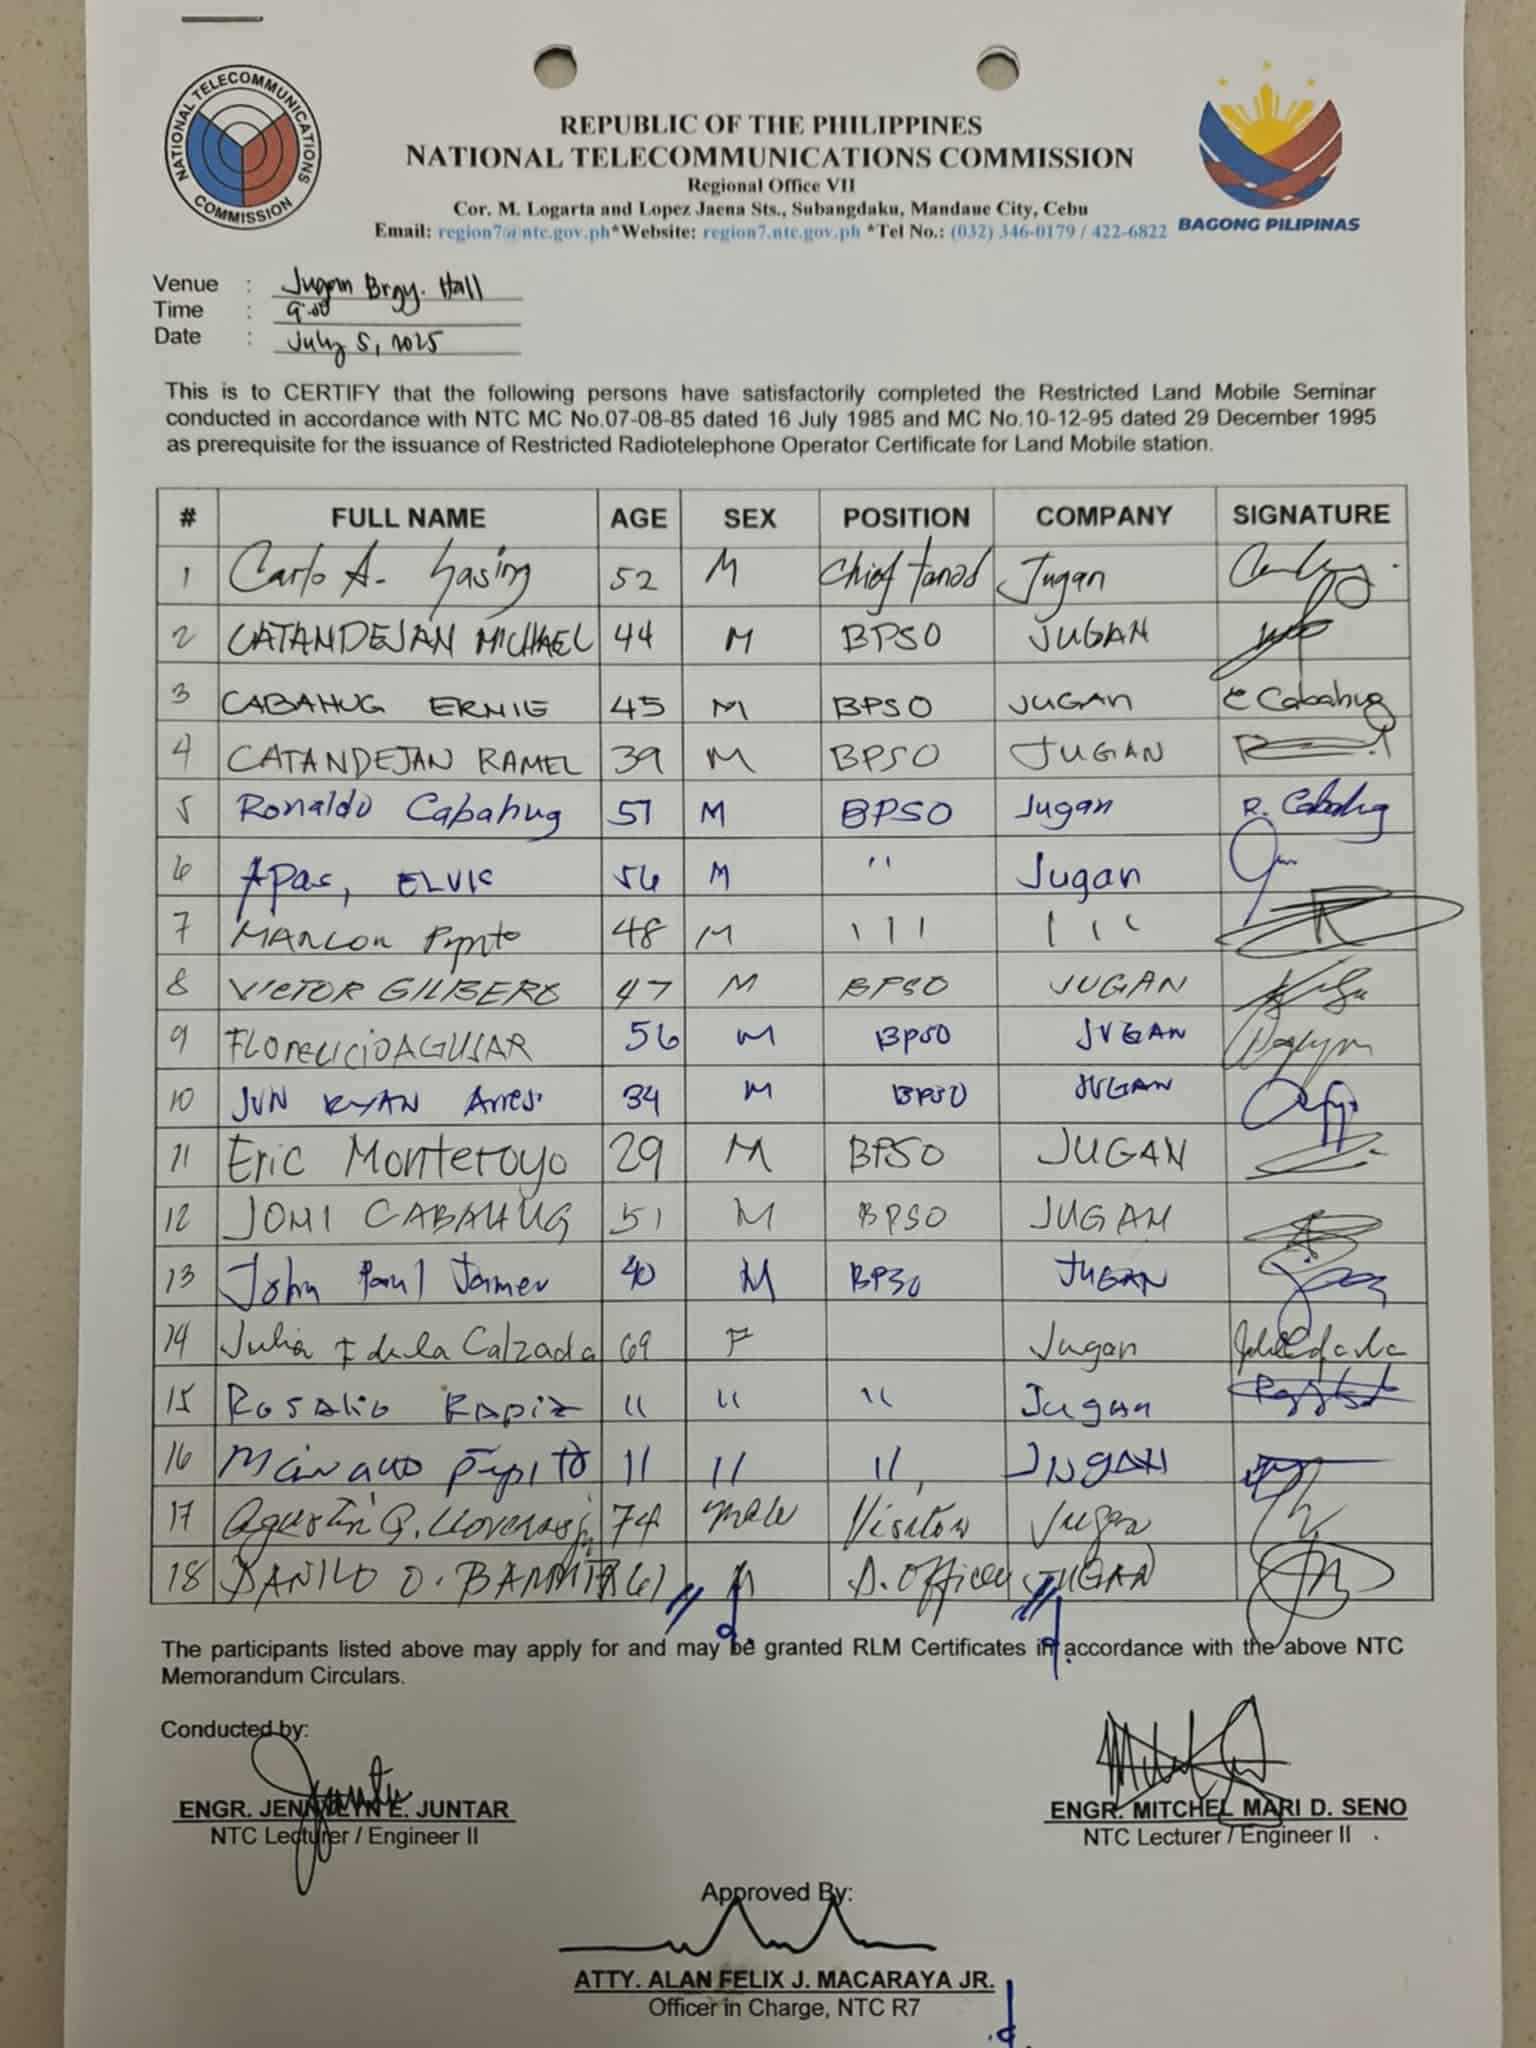 NATIONAL TELECOMMUNICATIONS COMMISSION
REPUBLIC OF THE PHILIPPINES
NATIONAL TELECOMMUNICATIONS COMMISSION
Regional Office VII
Cor. M. Logarta and Lopez Jaena Sts., Subangdaku, Mandaue City, Cebu
Email: region7@ntc.gov.ph*Website: region7.ntc.gov.ph *Tel No.: (032) 346-0179 / 422-6822
BAGONG PILIPINAS
Venue : Jugan Brgy. Hall
Time : 9:00
Date : July 5, 2025
This is to CERTIFY that the following persons have satisfactorily completed the Restricted Land Mobile Seminar
conducted in accordance with NTC MC No.07-08-85 dated 16 July 1985 and MC No.10-12-95 dated 29 December 1995
as prerequisite for the issuance of Restricted Radiotelephone Operator Certificate for Land Mobile station.
# FULL NAME AGE SEX POSITION COMPANY SIGNATURE
1 Carlo A. 52 M Chief Tanod Jugan
2 CATANDEJAN MICHAEL 44 M BPSO JUGAN
3 CABAHUG ERNIE 45 M BPSO JUGAN e Cabahug
4 CATANDEJAN RAMEL 39 M BPSO JUGAN
5 Ronaldo Cabahug 51 M BPSO Jugan R. Cabahug
6 Apas, ELVIS 56 M '' Jugan
7 MARLON 48 M ''' '''
8 VICTOR GILBERO 47 M BPSO JUGAN
9 FLORENCIO AGUILAR 56 M BPSO JUGAN
10 JUN RYAN 34 M BPSO JUGAN
11 Eric Monteroyo 29 M BPSO JUGAN
12 JONI CABAHUG 51 M BPSO JUGAN
13 John Paul 40 M BPSO JUGAN
14 Julia F dela Calzada 69 F Jugan
15 Rosalio Rapiz '' '' '' Jugan
16 Pepito '' '' '' JUGAN
17 Agustin Q. 74 male Visitor Jugan
18 DANILO O. 61 M D. Officer JUGAN
The participants listed above may apply for and may be granted RLM Certificates in accordance with the above NTC
Memorandum Circulars.
Conducted by:
ENGR. JENNALYN E. JUNTAR
NTC Lecturer / Engineer II
ENGR. MITCHEL MARI D. SENO
NTC Lecturer / Engineer II
Approved By:
ATTY. ALAN FELIX J. MACARAYA JR.
Officer in Charge, NTC R7